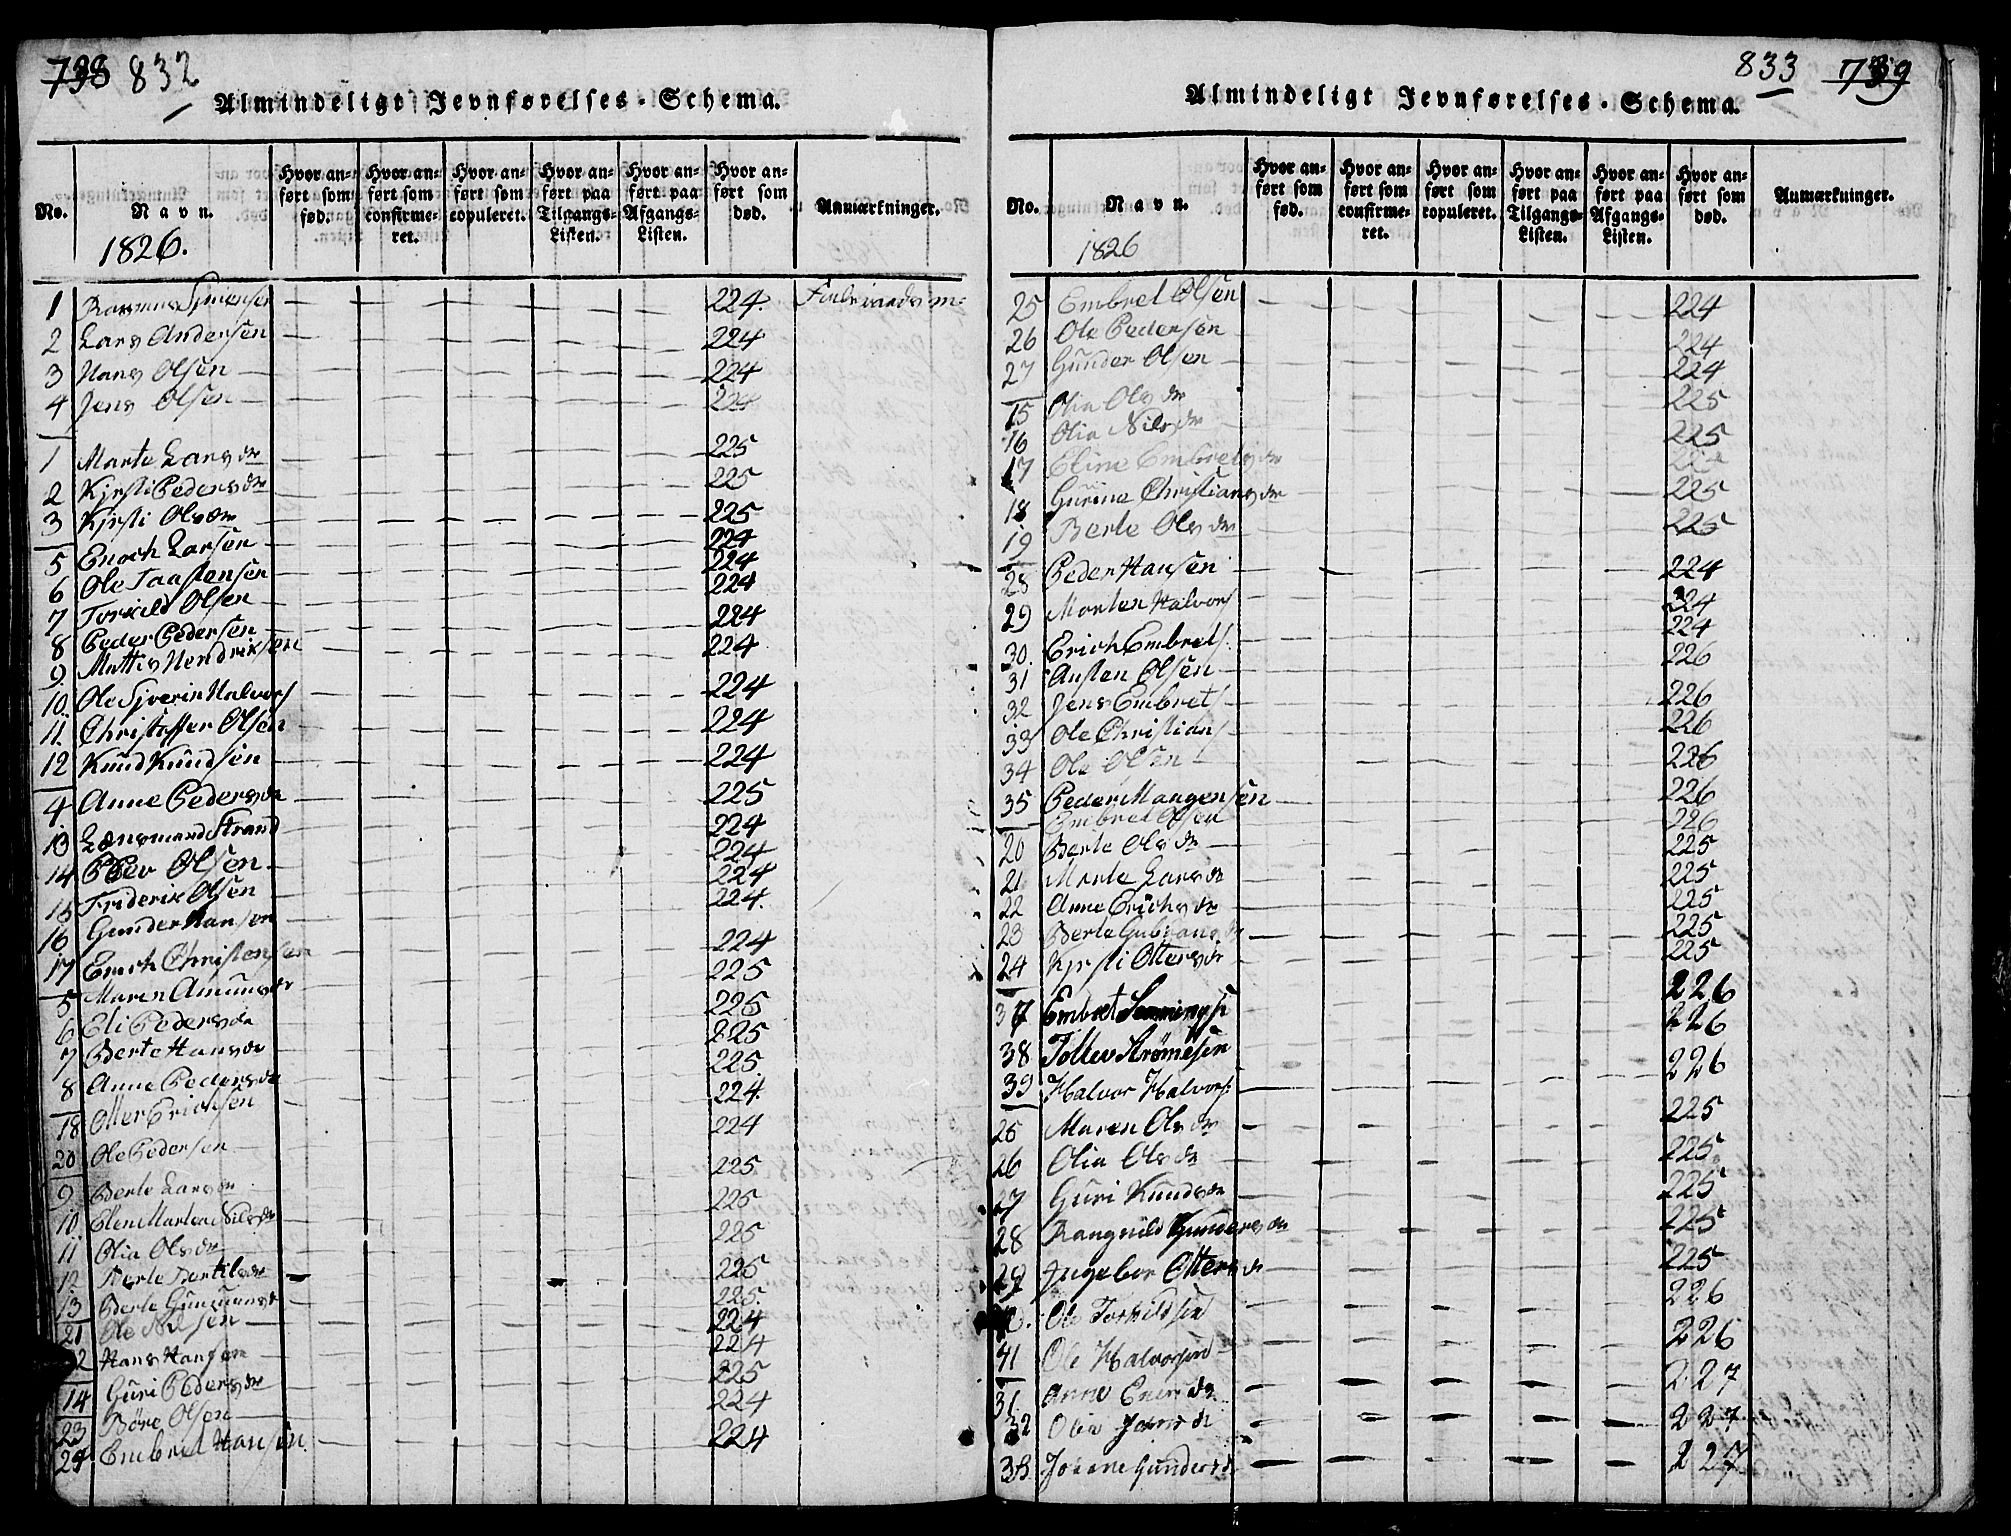 738 832
Almindeligt Jevnførelses-Schema.
No.
Navn.
1826.
Hvor anført som fød.
Hvor anført som confirmeret.
Hvor anført som copuleret.
Hvor anført paa Tilgangs-Listen.
Hvor anført paa Afgangs-Listen.
Hvor anført som død.
Anmærkninger.
1 Rasmus 224.
2 Lars Andersen 224
3 Hans Olsen 224
4 Jens Olsen 224
1 Marte Larsdr 225
2 Kjersti Pedersdr 225
3 Kjersti Olsdr 225
5 Enoch Larsen 224
6 Ole Taastensen 224
7 Torkild Olsen 224
8 Peder Pedersen 224
9. Mattis Hendriksen 224
10. Ole Sjverin Halvors 224
11. Christoffer Olsen 224
12 Knud Knudsen 224
4. Anne Pedersdr 225
13 Lænsmand Strand 224
14 Peder Olsen 224
15 Friderik Olsen 224
16 Gunder Hansen 224.
17 Erich Christensen 224
5 Maren Amunsdr 225
6 Eli Pedersdr 225
7 Berte Hansdr 225
8 Anne Pedersdr 225.
18 Otter Erichsen 224.
20 Ole Pedersen 224
9 Berte Larsdr 225
10 Elen Marten Nilsdr 225
11 Olia Olsdr 225
12. Berte Bertelsdr 225
13 Berte Gunnunsdr 225.
21 Ole Nilsen 224
22 Hans Hansen 224
14 Guri Pedersdr 225
23 Børe Olsen 224
24 Embret Hansen 224
833 739
Almindeligt Jevnførelses-Schema.
No.
Navn.
1826
Hvor anført som fød.
Hvor anført som confirmeret.
Hvor anført som copuleret.
Hvor anført paa Tilgangs-Listen.
Hvor anført paa Afgangs-Listen.
Hvor anført som død.
Anmærkninger.
25 Embret Olsen 224
26 Ole Pedersen 224
27 Gunder Olsen 224
15 Olia Olsdr 225
16 Olia Nilsdr 225
17 Eline Embretsdr 225
18 Gurine Christiansdr 225
19 Berte Olsdr 225
28 Peder Hansen 224
29 Morten Halvors 224
30. Erich Embrets 224
31 Austen Olsen 226
32 Jens Embrets 226
33 Ole Christians 226
34 Ole Olsen 226
35 Peder Mangensen 226
Embret Olsen 226
20 Berte Olsdr 225
21 Marte Larsdr 225
22 Anne Erichsdr 225
23 Berte Gulbransdr 225
24 Kjersti Ottersdr 225
37 Embret 226
38 Tollev Strømesen 226
39 Halvor Halvors 226
25 Maren Olsdr 225
26 Olia Olsdr 225
27 Guri Knudsdr 225
28 Rangnild Gundersdr 225
29 Ingebor Ottersdr 225
Ole Torkildsen 226
41 Ole Halvorsen 226
31. Anne Enersdr 227
32 Olia Jansdr 227
33 Johane Gundersd 227